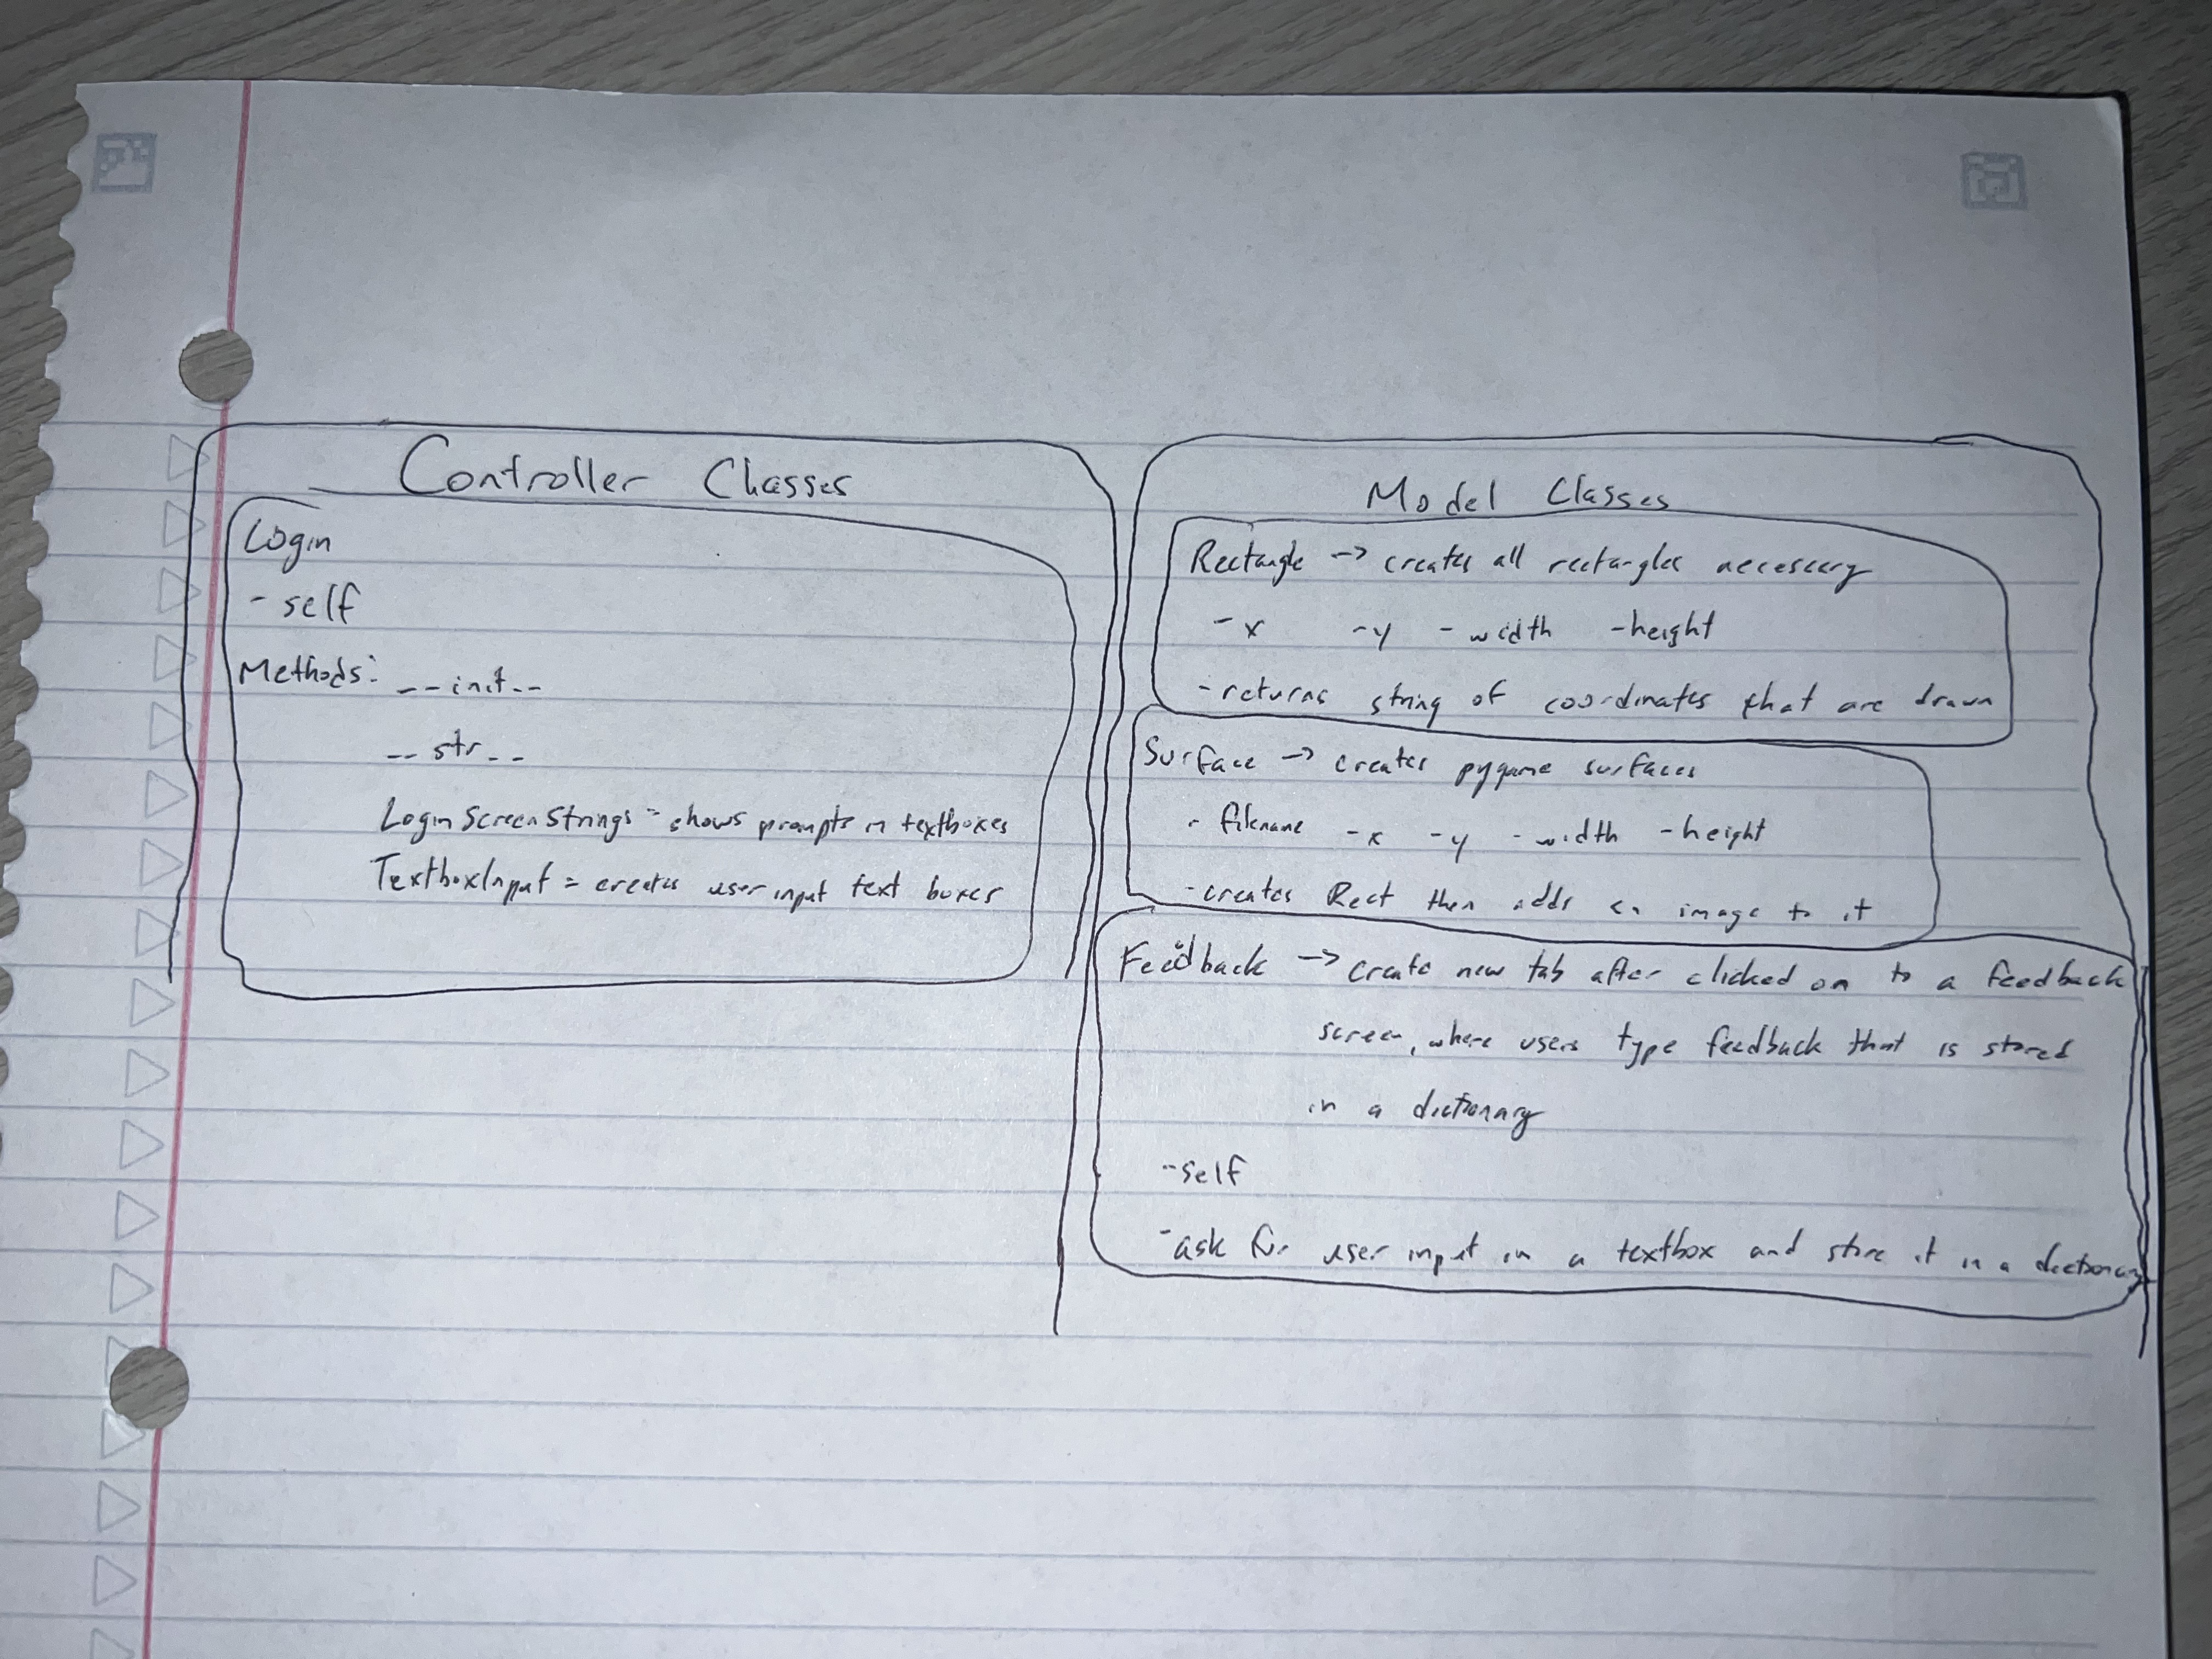 Controller Classes
Login
- self
Methods: --init--
--str--
LoginScreenStrings = shows prompts in textboxes
TextboxInput = creates user input text boxes
Model Classes
Rectangle -> creates all rectangles necessary
-x -y -width -height
- returns string of coordinates that are drawn
Surface -> creates pygame surfaces
- filename -x -y -width -height
- creates Rect then adds an image to it
Feedback -> create new tab after clicked on to a feedback
screen, where users type feedback that is stored
in a dictionary
--self
-ask for user input in a textbox and store it in a dictionary